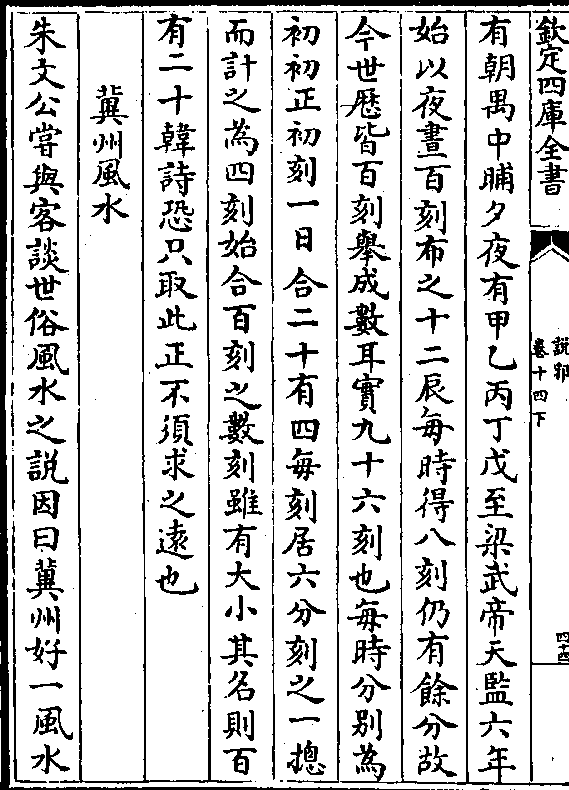 欽定四庫全書
說郛
卷十四下
四十四
有朝禺中晡夕夜有甲乙丙丁戊至梁武帝天監六年
始以夜晝百刻布之十二辰每時得八刻仍有餘分故
今世歴皆百刻舉成數耳實九十六刻也每時分別為
初初正初刻一日合二十有四每刻居六分刻之一摠
而計之為四刻始合百刻之數刻雖有大小其名則百
有二十韓詩恐只取此正不須求之遠也
冀州風水
朱文公嘗與客談世俗風水之說因曰冀州好一風水